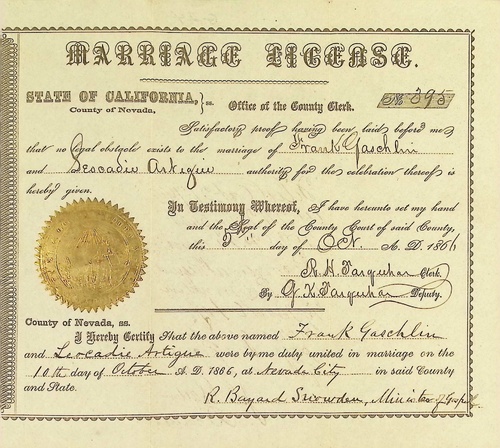 MARRIAGE LICENSE.
STATE OF CALIFORNIA, } ss.
County of Nevada.
Office of the County Clerk.
No 395
Satisfactory proof having been laid before me
that no legal obstacle exists to the marriage of Frank Gaschlin
and Leocadie Artigue authority for the celebration thereof is
hereby given.
In Testimony Whereof, I have hereunto set my hand
and the Seal of the County Court of said County,
this 5" day of Oct. A. D. 1866
R. H. Farquhar Clerk.
By G. K. Farquhar Deputy.
County of Nevada, ss.
I Hereby Certify That the above named Frank Gaschlin
and Leocadie Artigue were by me duly united in marriage on the
10th day of October A. D. 1866, at Nevada City in said County
and State.
R. Bayard Snowden, Minister of Gospel.